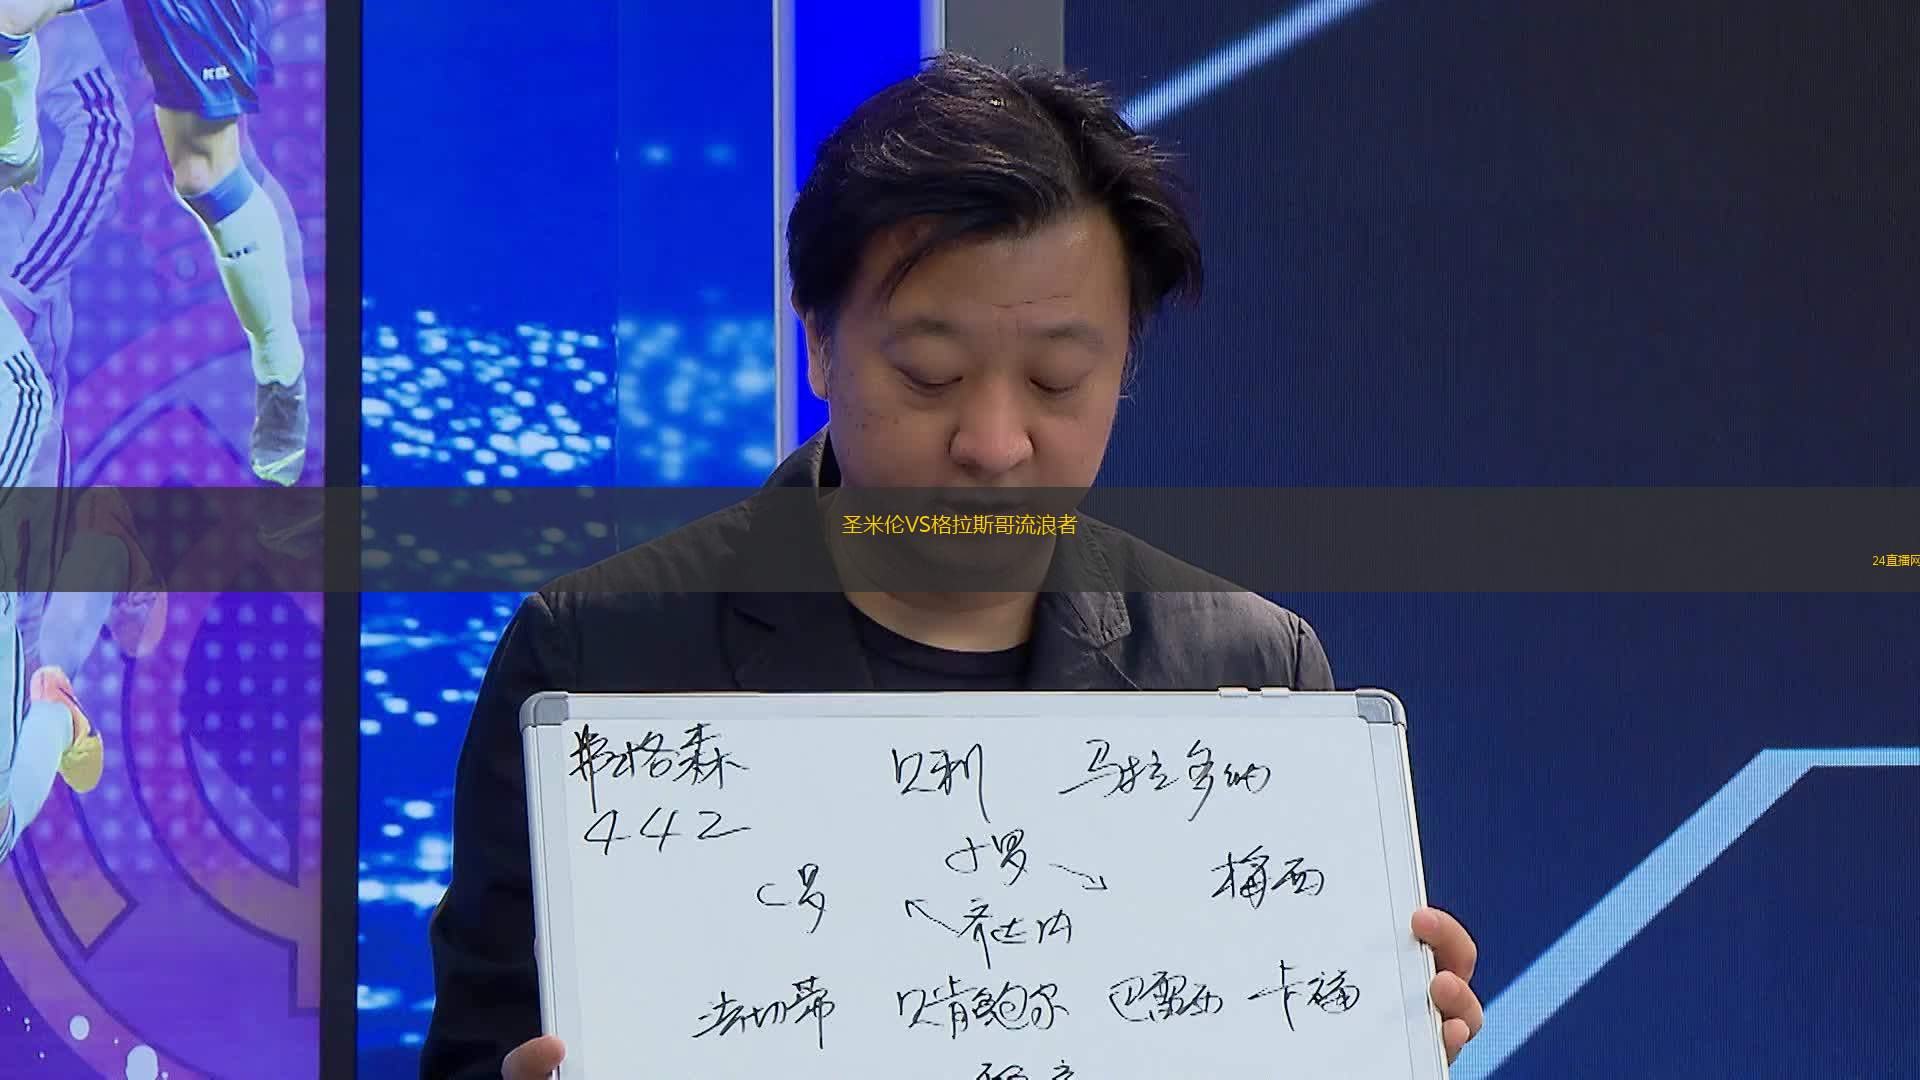 圣米伦VS格拉斯哥流浪者
24直播网
弗格森 贝利 马拉多纳
442
小罗
C罗 梅西
齐达内
法切蒂 贝肯鲍尔 巴雷西 卡福